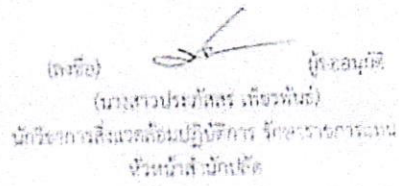 (ลงชื่อ) ผู้ขออนุมัติ
(นางสาวประภัสสร เพียรพันธ์)
นักวิชาการสิ่งแวดล้อมปฏิบัติการ รักษาราชการแทน
หัวหน้าสำนักปลัด